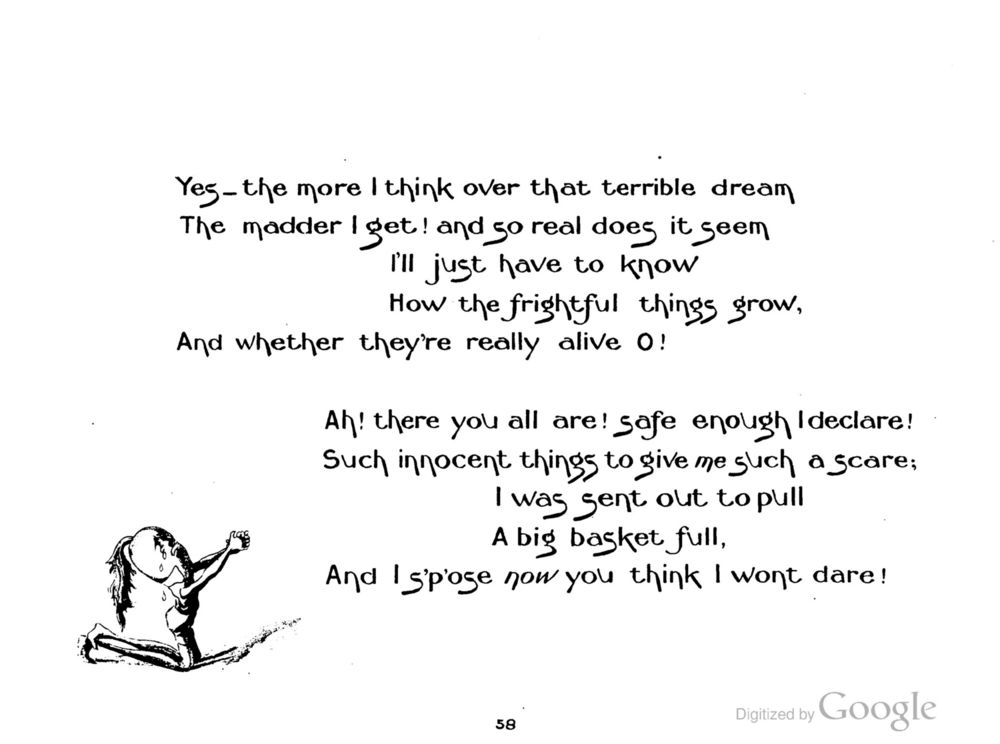 Yes – the more I think over that terrible dream
The madder I get! and so real does it seem
I'll just have to know
How the frightful things grow,
And whether they're really alive O!
Ah! there you all are! safe enough I declare!
Such innocent things to give me such a scare;
I was sent out to pull
A big basket full,
And I s'p'ose now you think I wont dare!
58
Digitized by Google